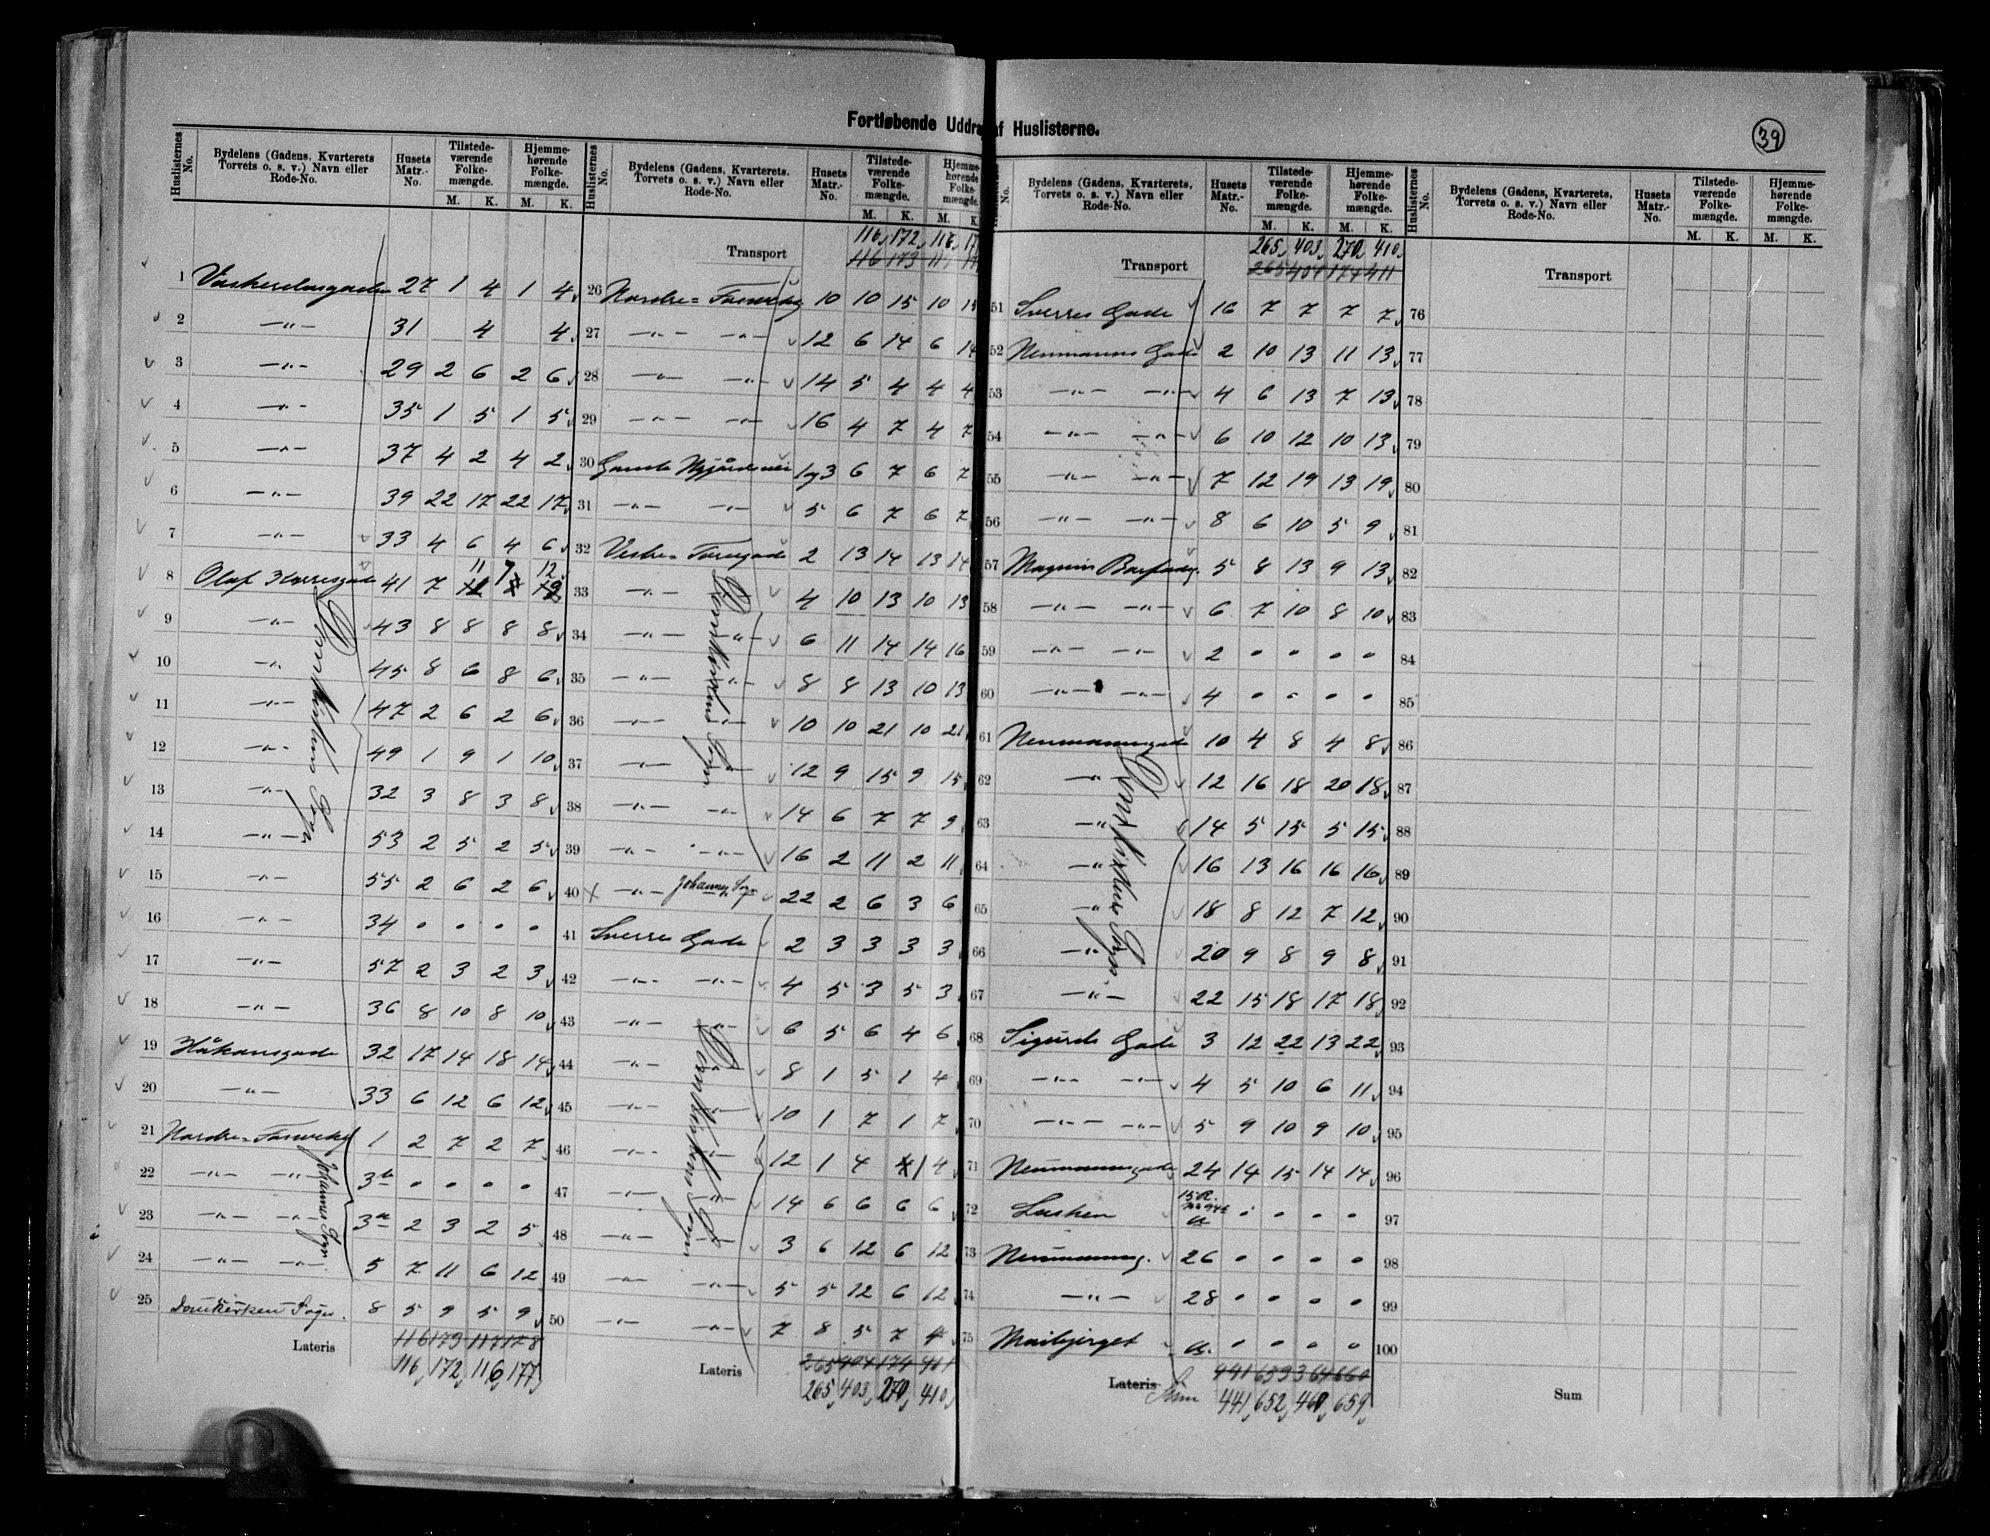 Fortløbende Uddrag af Huslisterne.
39
Huslisternes No. Bydelens (Gadens, Kvarterets Torvets o. s. v.) Navn eller Rode-No. Husets Matr.-No. Tilstede-værende Folke-mængde. Hjemme-hørende Folke-mængde.
M. K. M. K.
1 Vaskerelvsgaden 27 1 4 1 4
2 —"— 31 4 4
3 —"— 29 2 6 2 6
4 —"— 35 1 5 1 5
5 —"— 37 4 2 4 2
6 —"— 39 22 17 22 17
7 —"— 33 4 6 4 6
8 Olaf Kyrresgade 41 7 11 7 12
9 —"— 43 8 8 8 8
10 —"— 45 8 6 8 6
11 —"— 47 2 6 2 6
12 —"— 49 1 9 1 10
13 —"— 32 3 8 3 8
14 —"— 53 2 5 2 5
15 —"— 55 2 6 2 6
16 —"— 34 " " " "
17 —"— 57 2 3 2 3
18 —"— 36 8 10 8 10
19 Håkonsgade 32 17 14 18 14
20 —"— 33 6 12 6 12
Domkirkens Sogn
21 Nordre= 1 2 7 2 7
22 —"— —"— 3b " " " "
23 —"— —"— 3a 2 3 2 5
24 —"— —"— 5 7 11 6 12
Johannes Sogn
25 Domkirkens Sogn. 8 5 9 5 9
Lateris 116 173 117 178
116 172 116 177
Huslisternes No. Bydelens (Gadens, Kvarterets. Torvets o. s. v.) Navn eller Rode-No. Husets Matr.-No. Tilstede-værende Folke-mængde. Hjemme-hørende Folke-mængde.
M. K. M. K.
116 172 116
Transport 116 173
26 Nordre= 10 10 15 10 15
27 —"— —"— 12 6 14 6 14
28 —"— —"— 14 5 4 4 4
29 —"— —"— 16 4 7 4 7
30 Gamle Nygårdsvei 1og3 6 7 6 7
31 —"— —"— 5 6 7 6 7
32 Vestre= Torvgade 2 13 14 13 14
33 —"— 4 10 13 10 13
34 —"— —"— 6 11 14 14 16
35 —"— —"— 8 8 13 10 13
36 —"— —"— 10 10 21 10 21
37 —"— 12 9 15 9 15
38 —"— —"— 14 6 7 7 9
39 —"— —"— 16 2 11 2 11
Domkirkens Sogn
40 —"— Johannes Sogn 22 2 6 3 6
41 Sverres Gade 2 3 3 3 3
42 —"— —"— 4 5 3 5 3
43 —"— —"— 6 5 6 4 6
44 —"— —"— 8 1 5 1 4
45 —"— —"— 10 1 7 1 7
46 —"— —"— 12 1 4 1 4
47 —"— —"— 14 6 6 6 6
48 —"— —"— 3 6 12 6 12
49 —"— —"— 5 5 12 6 12
50 —"— —"— 7 8 5 7 4
Domkirkens Sogn
Lateris 265 404 174 411
265 403 270 410
No. Bydelens (Gadens, Kvarterets, Torvets o. s. v.) Navn eller Rode-No. Husets Matr.-No. Tilstede-værende Folke-mængde. Hjemme-hørende Folke-mængde.
M. K. M. K.
265 403 270 410
Transport 265 404 174 411
51 Sverres Gade 16 7 7 7 7
52 Neumanns Gade 2 10 13 11 13
53 —"— —"— 4 6 13 7 13
54 —"— —"— 6 10 12 10 13
55 —"— —"— 7 12 19 13 19
56 —"— —"— 8 6 10 5 9
57 Magnus Barfodg. 5 8 13 9 13
58 —"— —"— 6 7 10 8 10
59 —"— —"— 2 " " " "
60 —"— —"— 4 " " " "
61 Neumannsgade 10 4 8 4 8
62 —"— 12 16 18 20 18
63 —"— 14 5 15 5 15
64 —"— 16 13 16 16 16
65 —"— 18 8 12 7 12
66 —"— 20 9 8 9 8
67 —"— 22 15 18 17 18
Domkirkens Sogn.
68 Sigurds Gade 3 12 22 13 22
69 —"— —"— 4 5 10 6 11
70 —"— —"— 5 9 10 9 10
71 Neumannsgade 24 14 15 14 14
72 15 R. a " " " "
73 Neumannsg. 26 " " " "
74 —"— 28 " " " "
75 a. " " " "
Lateris
Sum 441 652 460 659
Huslisternes No. Bydelens (Gadens, Kvarterets, Torvets o. s. v.) Navn eller Rode-No. Husets Matr.-No. Tilstede-værende Folke-mængde. Hjemme-hørende Folke-mængde.
M. K. M. K.
Transport
76
77
78
79
80
81
82
83
84
85
86
87
88
89
90
91
92
93
94
95
96
97
98
99
100
Sum